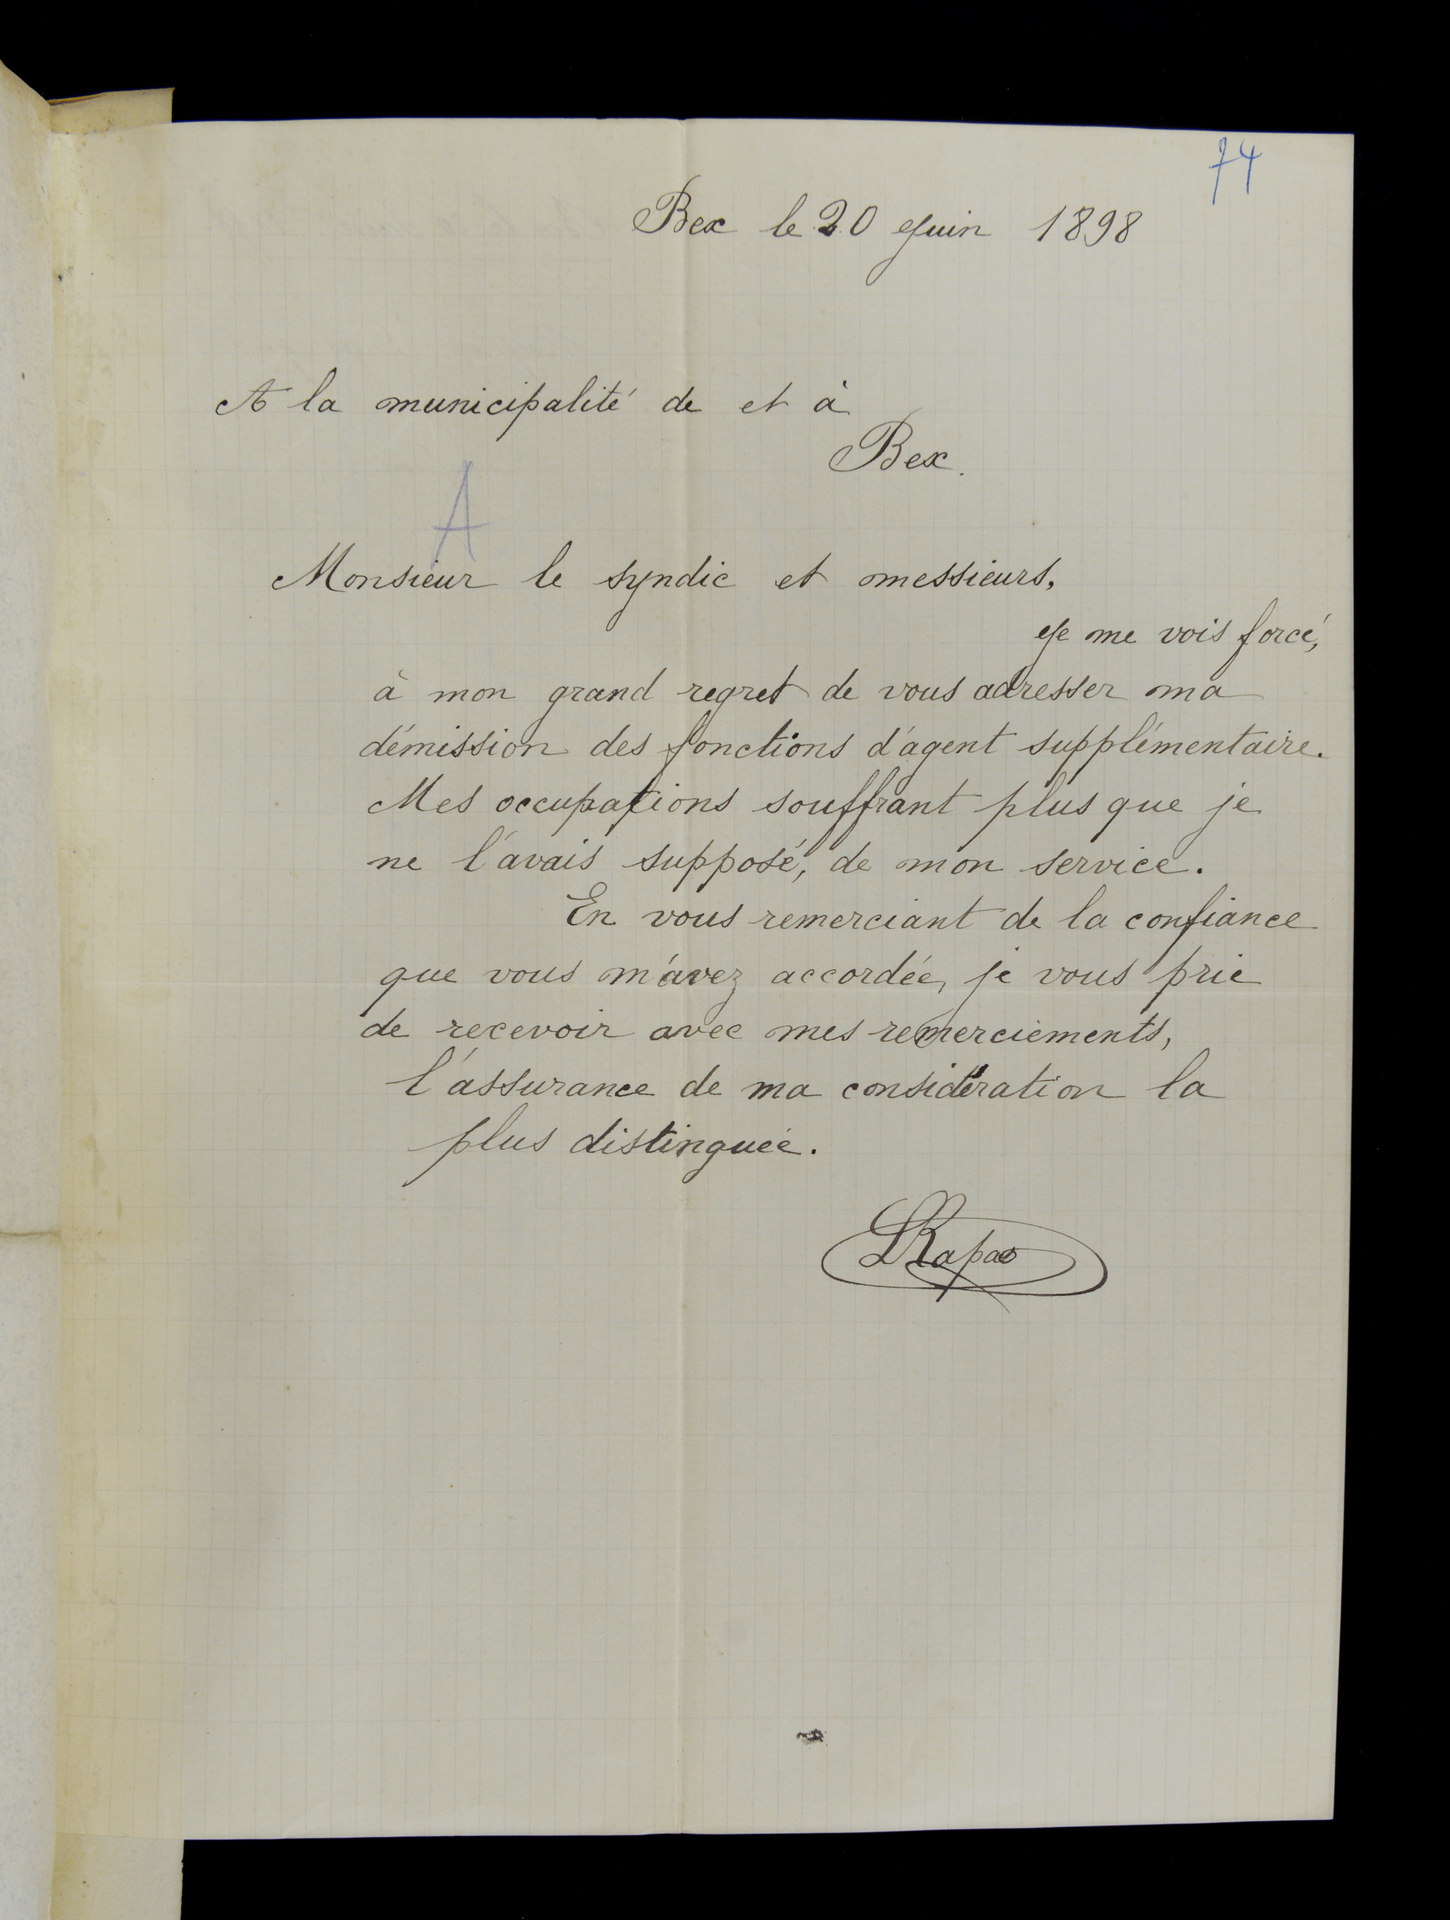 74
Bex le 20 Juin 1898
A la municipalité de et à
Bex.
A
Monsieur le syndic et messieurs,
Je me vois forcé,
à mon grand regret de vous adresser ma
démission des fonctions d'agent supplémentaire.
Mes occupations souffrant plus que je
ne l'avais supposé, de mon service.
En vous remerciant de la confiance
que vous m'avez accordée, je vous prie
de recevoir avec mes remerciements,
l'assurance de ma considération la
plus distinguée.
LRapaz